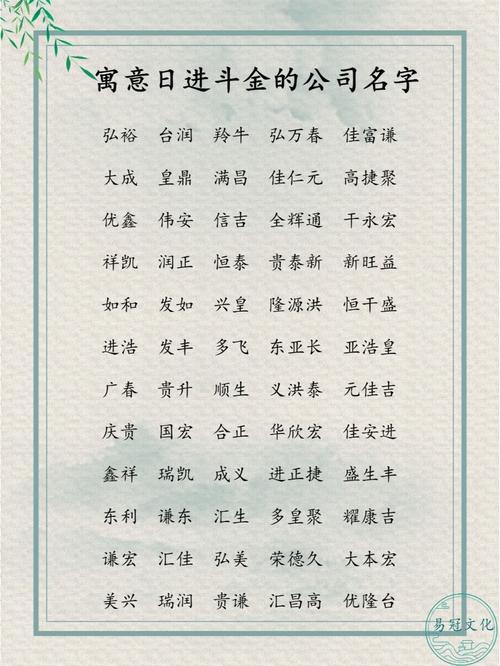 寓意日进斗金的公司名字
弘裕 台润 羚牛 弘万春 佳富谦
大成 皇鼎 满昌 佳仁元 高捷聚
优鑫 伟安 信吉 全辉通 干永宏
祥凯 润正 恒泰 贵泰新 新旺益
如和 发如 兴皇 隆源洪 恒干盛
进浩 发丰 多飞 东亚长 亚浩皇
广春 贵升 顺生 义洪泰 元佳吉
庆贵 国宏 合正 华欣宏 佳安进
鑫祥 瑞凯 成义 进正捷 盛生丰
东利 谦东 汇生 多皇聚 耀康吉
谦宏 汇佳 弘美 荣德久 大本宏
美兴 瑞润 贵谦 汇昌高 优隆台
易冠文化